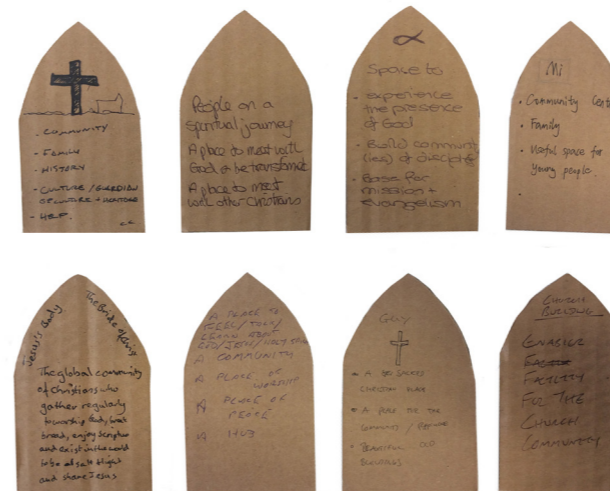 - COMMUNITY
- FAMILY
- HISTORY
- CULTURE / GUARDIAN
OF CULTURE + HERITAGE
- HELP.
People on a
spiritual journey
A place to meet with
God & be transformed
A place to meet
with other Christians
Space to
- experience
the presence
of God
- Build community
(ies) of disciples
- Base for
mission +
evangelism
Mi
• Community Cent
• Family
• Useful space for
Young people.
Jesus's Body
The Bride of
The global community
of Christians who
gather regularly
to worship God, break
bread, enjoy Scripture
and exist in the world
to be as salt + light
and share Jesus
A PLACE TO
FEEL / TOUCH /
LEARN ABOUT
GOD/JESUS/HOLY
A COMMUNITY
A PLACE OF
WORSHIP
A PLACE OF
PEACE
A HUB
Guy
CHRISTIAN PLACE
• A PLACE FOR THE
COMMUNITY /
• BEAUTIFUL OLD
BUILDINGS
CHURCH
BUILDING
ENABLING
FACILITY
FOR THE
CHURCH
COMMUNITY